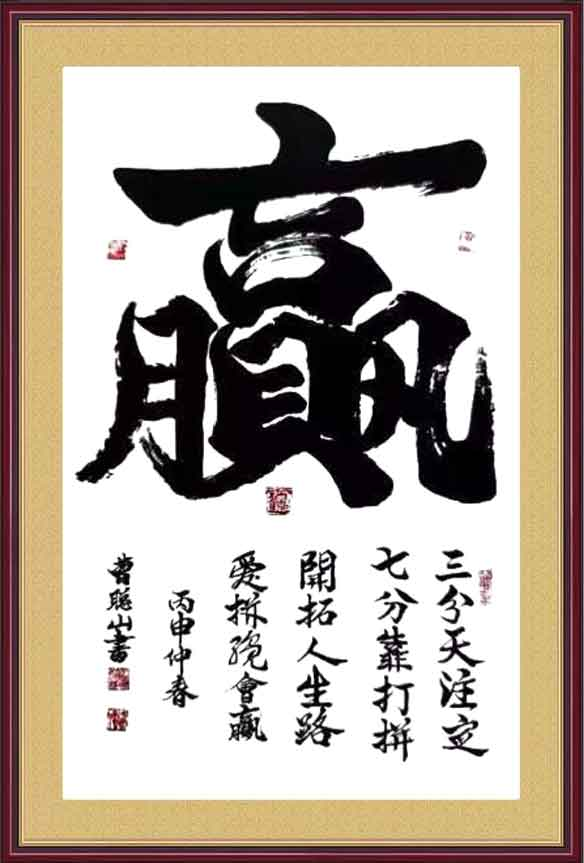 贏
三分天注定
七分靠打拼
開拓人生路
愛拼纔會贏
丙申仲春
曹聰山書